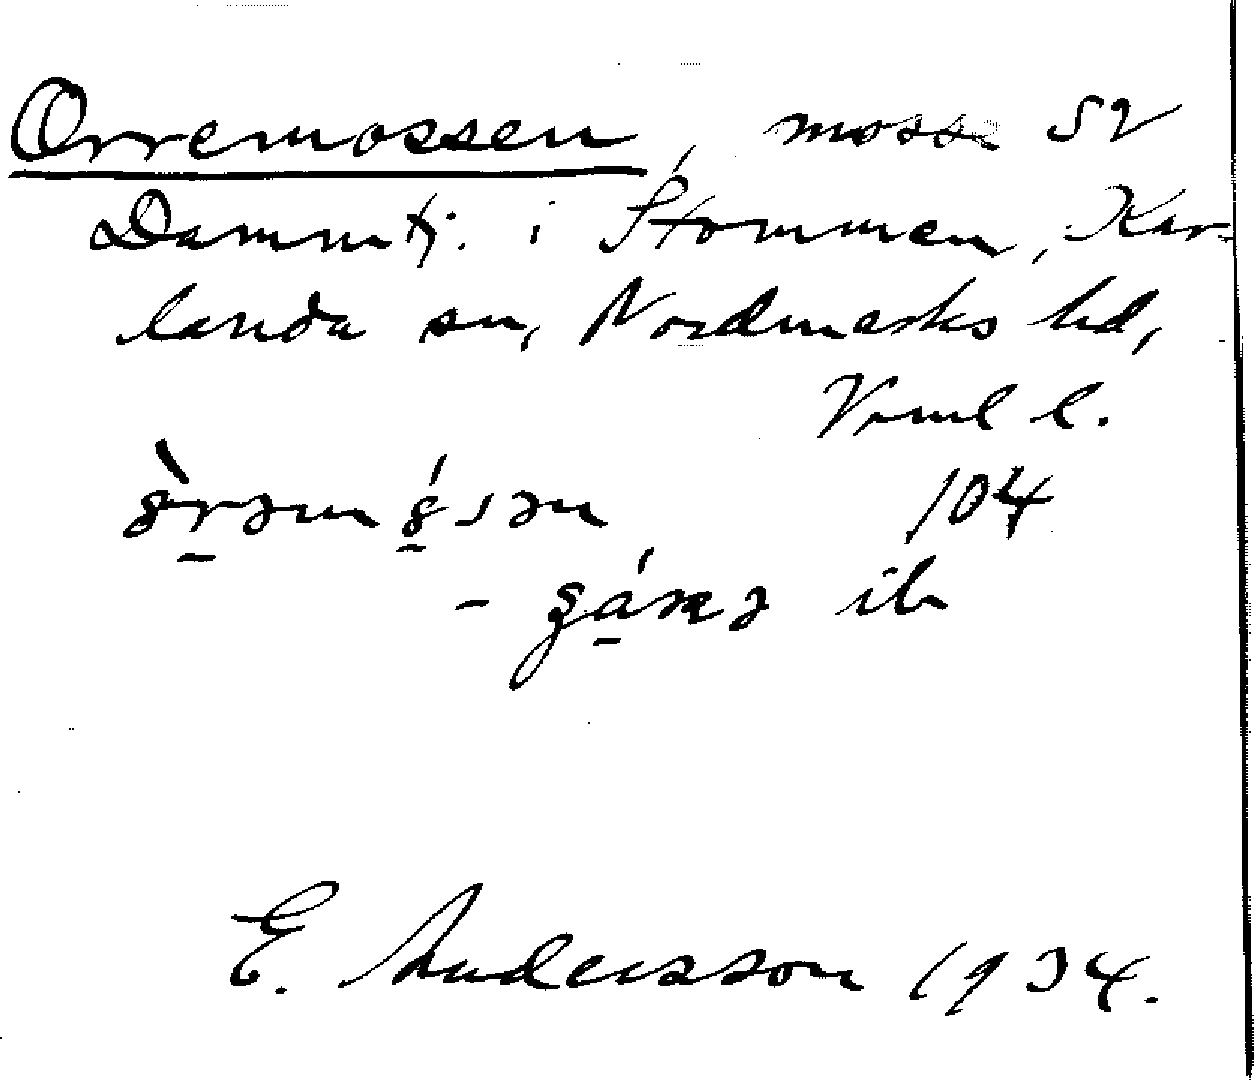 Orremossen, mosse SV
Dammtj. i Stommen, Kar-
landa sn, Nordmarks hd,
Vrml l.
104
ib
E. Andersson 1934.